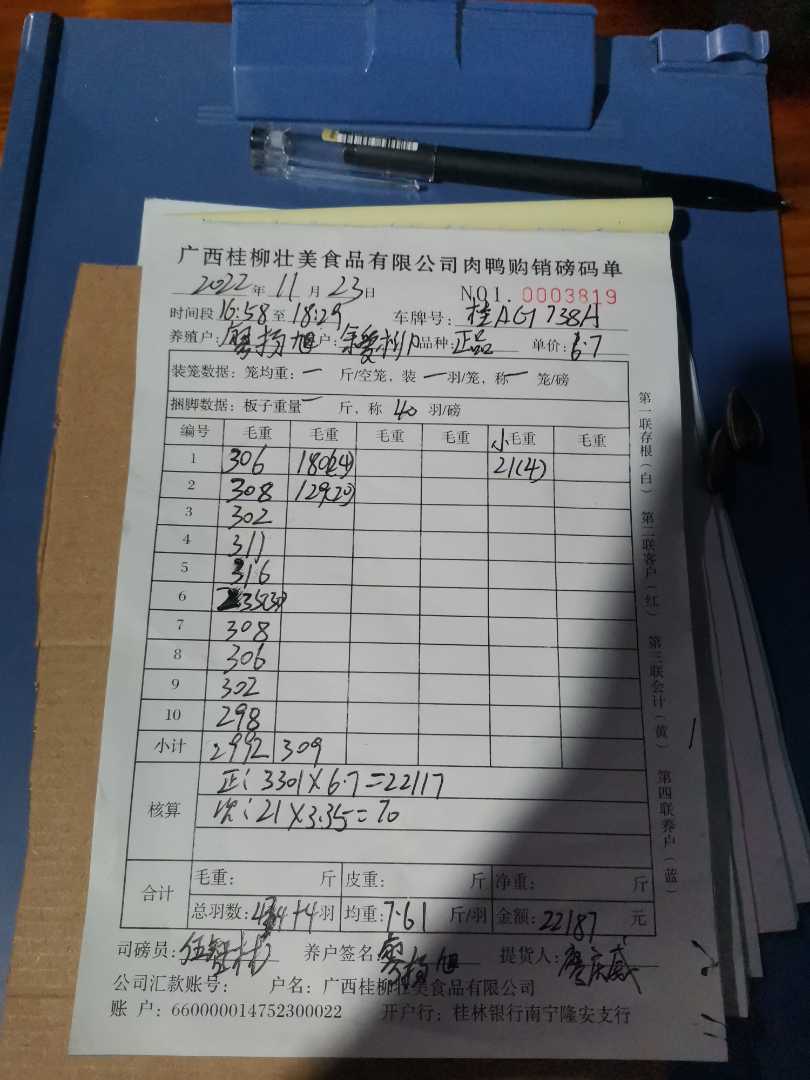 广西桂柳壮美食品有限公司肉鸭购销磅码单
2022年11月23日 NO1.0003819
时间段16:58至18:29 车牌号：桂AG1738A
养殖户：廖扬旭 户： 品种：正品 单价：6.7
装笼数据：笼均重：一斤/空笼，装一羽/笼，称一笼/磅
捆脚数据：板子重量一斤，称40羽/磅
编号 毛重 毛重 毛重 毛重 小毛重 毛重
1 306 180(24) 21(4)
2 308 129(20)
3 302
4 311
5 316
6 235(30)
7 308
8 306
9 302
10 298
小计 2992 309
核算 正：3301×6.7=22117
次：21×3.35=70
合计 毛重： 斤 皮重： 斤 净重： 斤
总羽数：434+4羽 均重：7.61斤/羽 金额：22187元
司磅员： 养户签名：廖扬旭 提货人：廖庆威
公司汇款账号： 户名：广西桂柳壮美食品有限公司
账 户：660000014752300022 开户行：桂林银行南宁隆安支行
第一联存根（白） 第二联客户（红） 第三联会计（黄） 第四联养户（蓝）